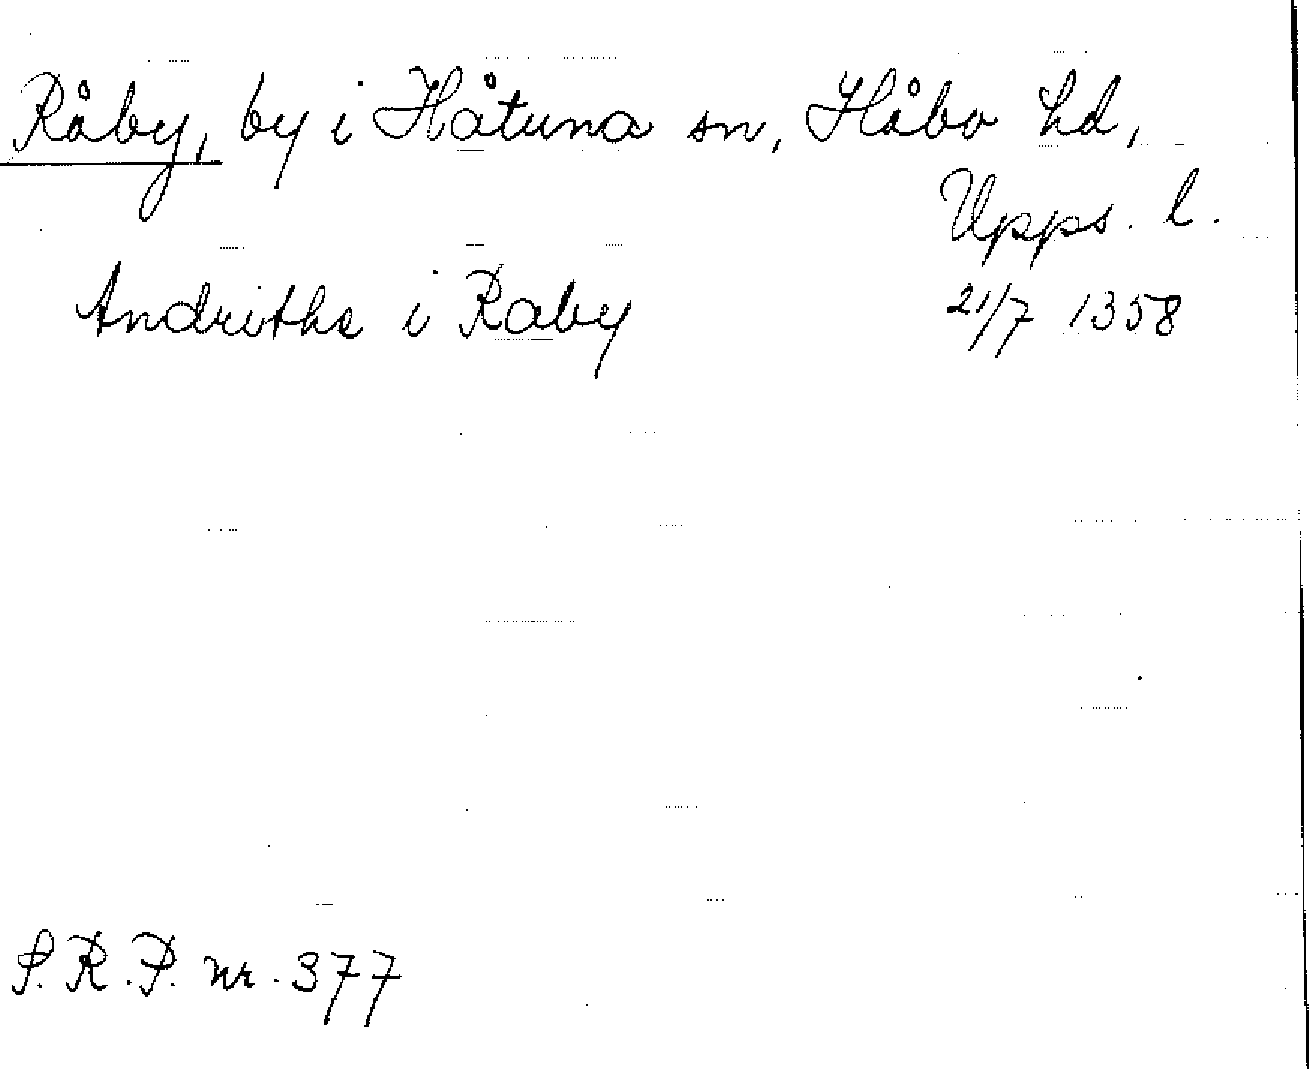 Råby, by i Håtuna sn, Håbo hd,
Upps. l.
Andrithe i Raby 21/7 1358
S.R.P. nr. 377